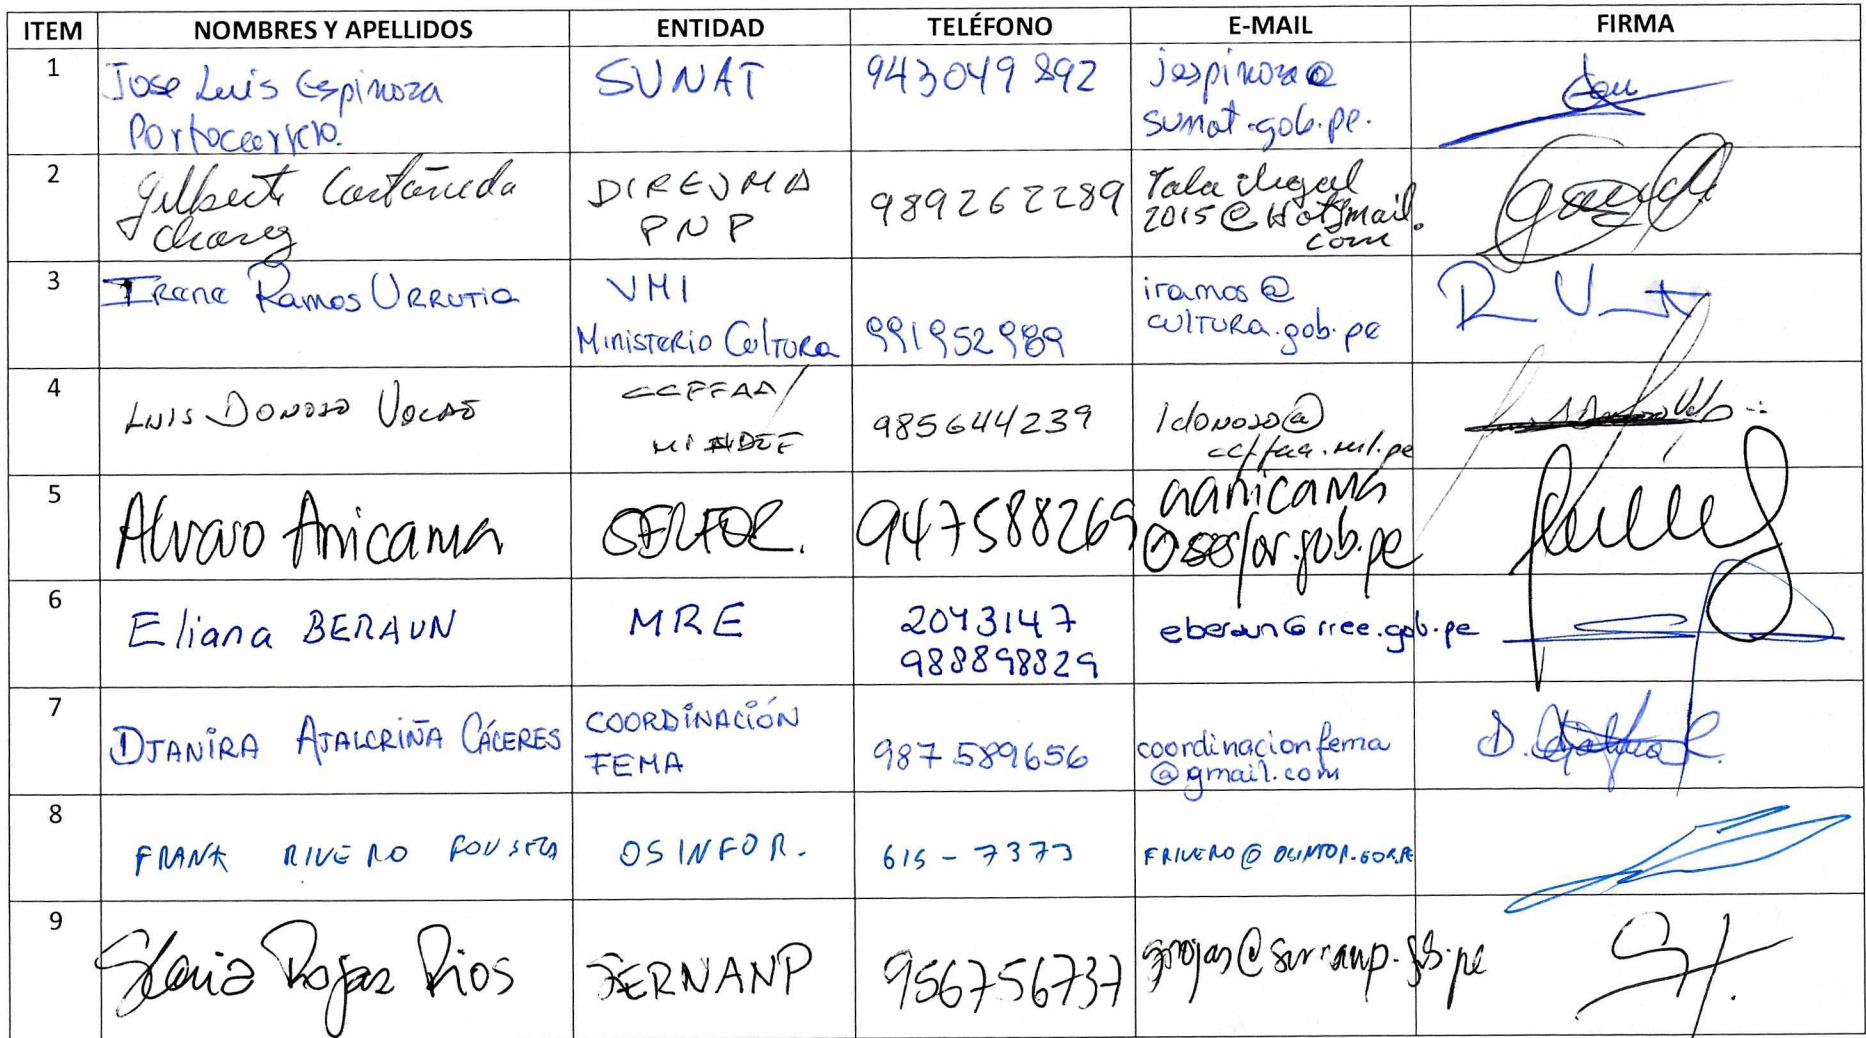 ITEM NOMBRES Y APELLIDOS ENTIDAD TELÉFONO E-MAIL FIRMA
1 Jose Luis Espinoza SUNAT 943049892 jespinoza@
Portocarrero. sunat.gob.pe.
2 Gilberto Castañeda DIREJMA 989262289 Tala ilegal
Chavez PNP 2015@Hotmail.
com
3 Irene Ramos URRUTIA VMI iramos@
Ministerio Cultura 991952989 cultura.gob.pe
4 LUIS DONOSO CCFFAA/ 985644239 ldonoso@
MINDEF ccffaa.mil.pe
5 Alvaro Anicama SERFOR. 947588269 aanicama
@serfor.gob.pe
6 Eliana BERAUN MRE 2043147 eberaun@rree.gob.pe
988898829
7 DJANIRA AJALCRIÑA CÁCERES COORDINACIÓN 987589656 coordinacionfema
FEMA @gmail.com
8 FRANK RIVERO FONSECA OSINFOR. 615-7373 FRIVERO@OSINFOR.GOB.PE
9 Gloria Rojas Rios SERNANP 956756737 grojas@sernanp.gob.pe